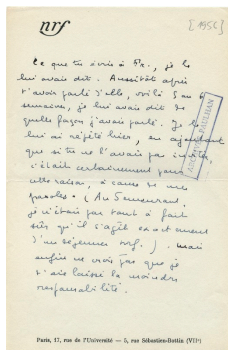 nrf
[1956]
Ce que tu écris à Px., je le
lui avais dit. Aussitôt après
t'avoir parlé d'elle, voilà 5 ou 6
semaines, je lui avais dit de
quelle façon j'avais parlé. Je le
lui ai répété hier, en ajoutant
que si tu ne l'avais pas invitée,
c'était certainement pour
cette raison, à cause de mes
paroles. (Au demeurant
je n'étais pas tout à fait
sûr qu'il s'agît exactement
d'un déjeuner nrf.). Mais
enfin ne crois pas que je
t'aie laissé la moindre
responsabilité.
ARCHIVES PAULHAN
Paris, 17, rue de l'Université — 5, rue Sébastien-Bottin (VIIe)